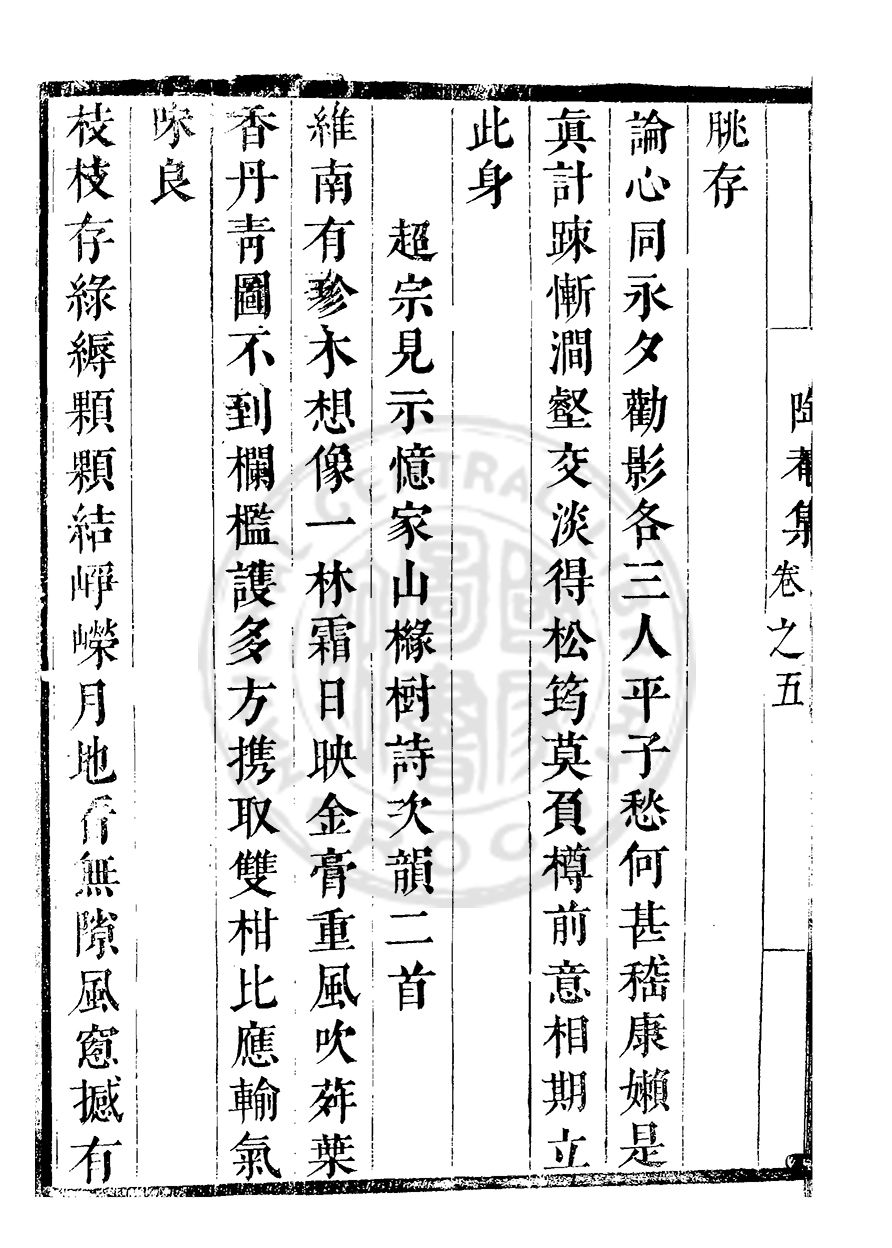 陶菴集 卷之五
朓存
論心同永夕勸影各三人平子愁何甚嵇康嬾是
眞計踈慚澗壑交淡得松筠莫負樽前意相期立
此身
超宗見示憶家山橼樹詩次韻二首
維南有珍木想像一林霜日映金膏重風吹葉
香丹青圖不到欄檻護多方携取雙柑比應輸氣
味良
枝枝存綠縟顆顆結崢嶸月地看無隙風窻撼有